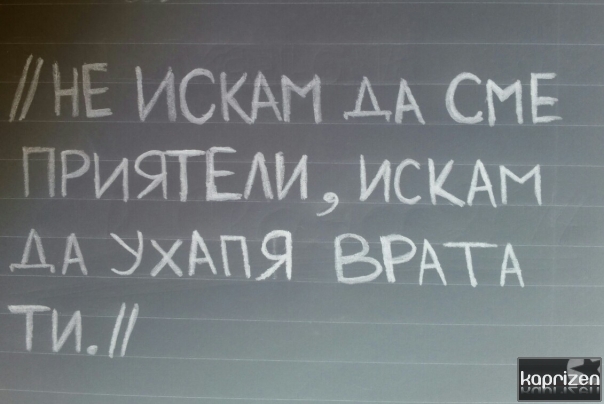 //НЕ ИСКАМ ДА СМЕ
ПРИЯТЕЛИ, ИСКАМ
ДА УХАПЯ ВРАТА
ТИ.//
kaprizen